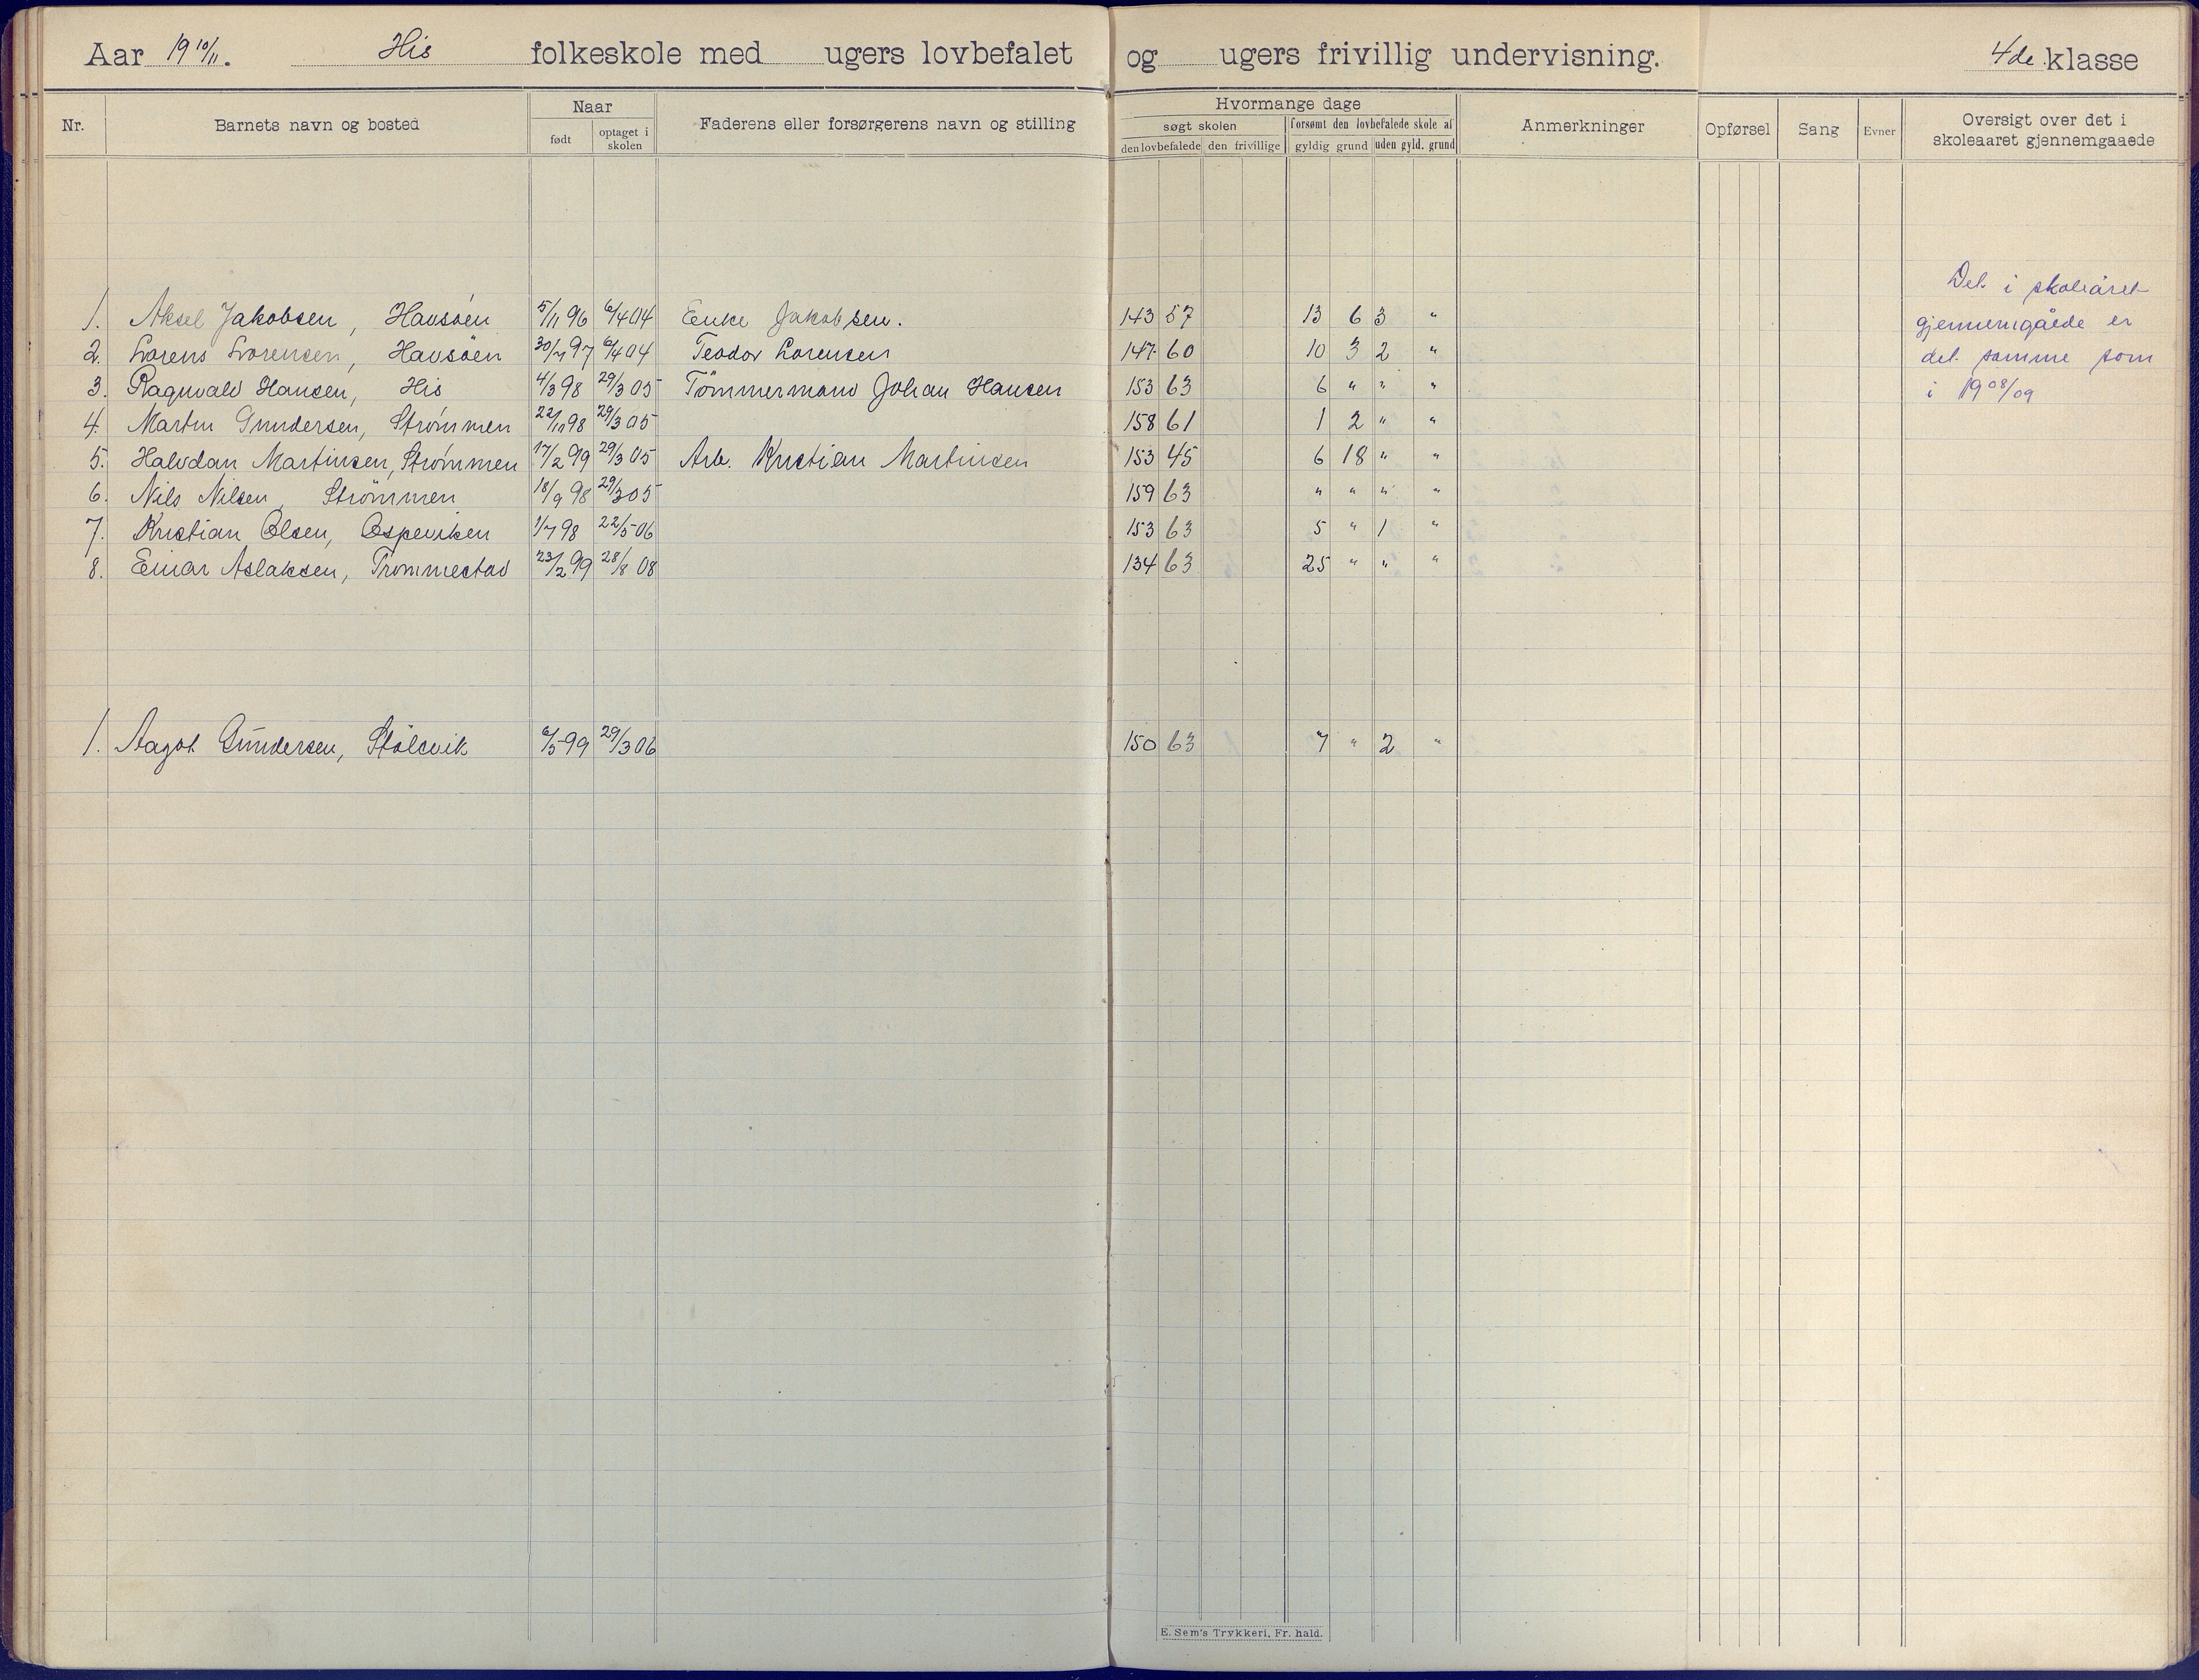 Aar 19 10/11. His folkeskole med ugers lovbefalet og ugers frivillig undervisning. 4de klasse
Nr. Barnets navn og bosted Naar født optaget i skolen Faderens eller forsørgerens navn og stilling Hvormange dage søgt skolen den lovbefalede den frivillige forsømt den lovbefalede skole af gyldig grund uden gyld. grund Anmerkninger Opførsel Sang Evner Oversigt over det i skoleaaret gjennemgaaede
Det i skoleåret
gjennemgåede er
det samme som
i 1908/09
1. Aksel Jakobsen, Havsøen 5/11 96 6/4 04 Enke Jakobsen. 143 57 13 6 3 "
2. Lorens Lorensen, Havsöen 30/7 97 6/4 04 Teodor Lorensen 147 60 10 3 2 "
3. Ragnvald Hansen, His 4/3 98 29/3 05 Tömmermand Johan Hansen 153 63 6 " " "
4. Martin Gundersen, Strømmen 22/10 98 29/3 05 158 61 1 2 " "
5. Halvdan Martinsen, Strømmen 17/2 99 29/3 05 Arb. Kristian Martinsen 153 45 6 18 " "
6. Nils Nilsen, Strömmen 18/9 98 29/3 05 159 63 " " " "
7. Kristian Olsen, Ospeviken 1/7 98 22/5 06 153 63 5 " 1 "
8. Einar Aslaksen, Trommestad 23/2 99 28/8 08 134 63 25 " " "
1. Aagot Gundersen, Stölsvik 6/5 99 29/3 06 150 63 7 " 2 "
E. Sem's Trykkeri, Fr. hald.